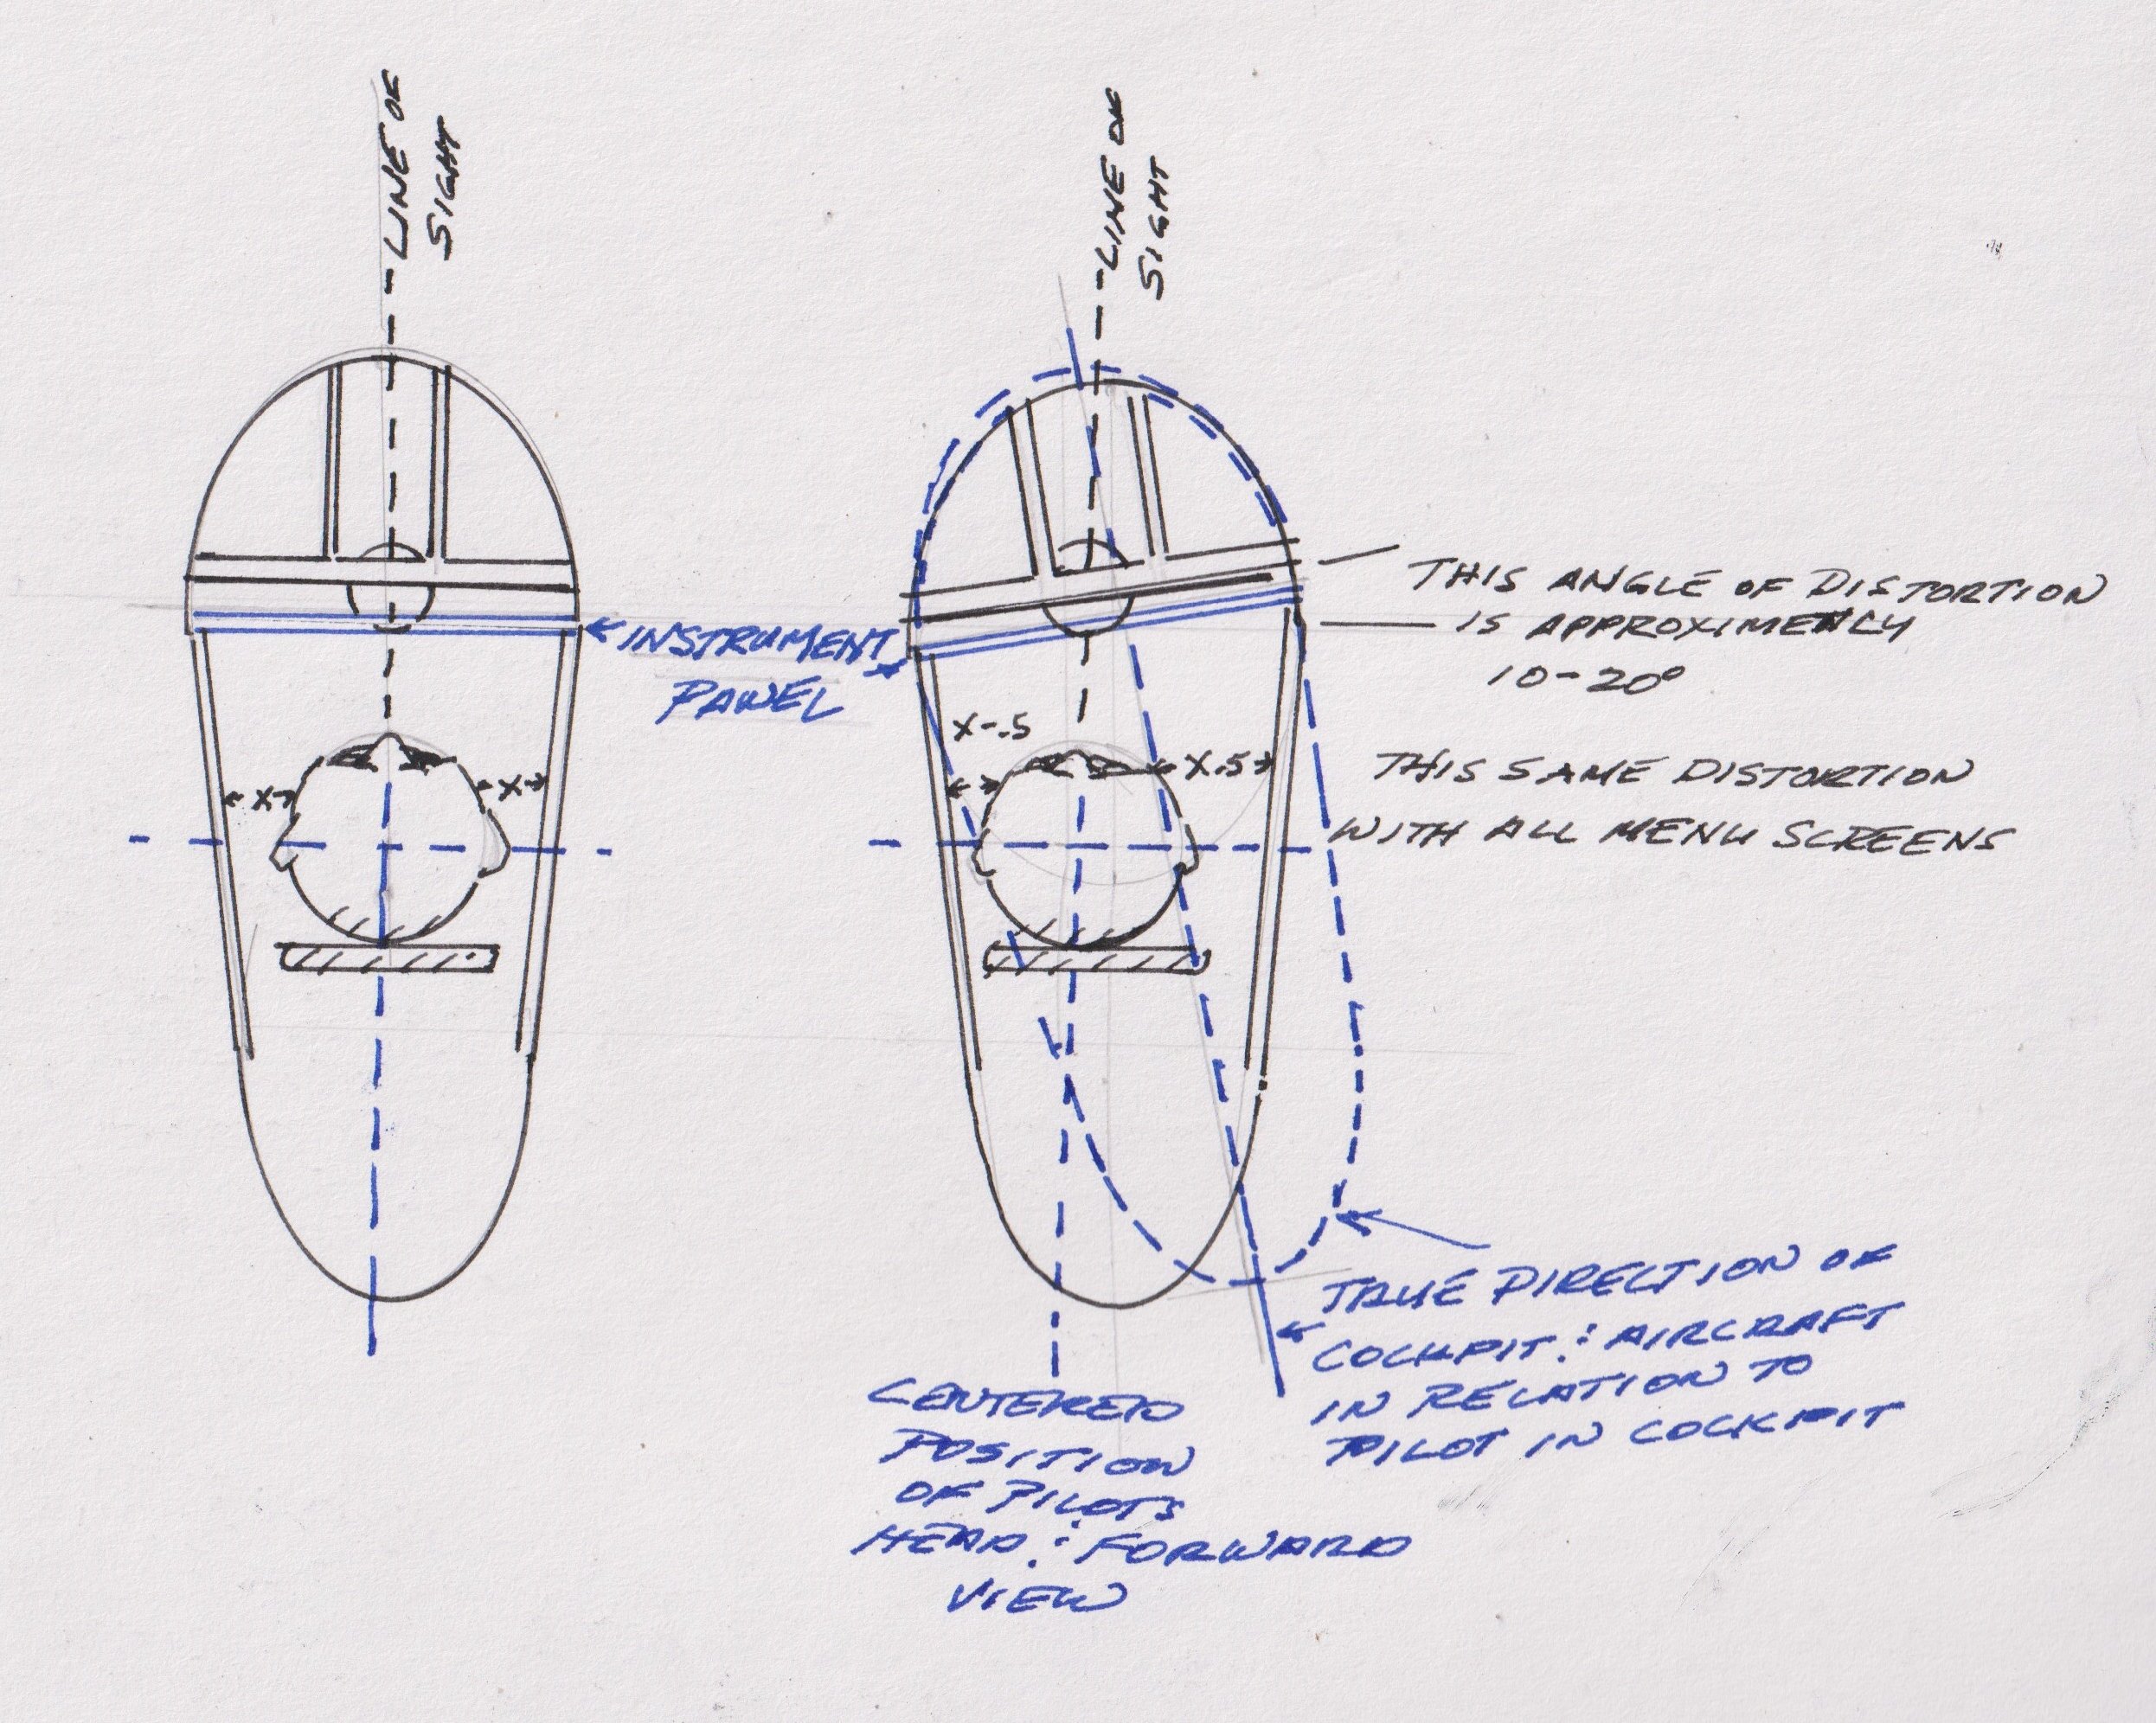 LINE OF
SIGHT
LINE OF
SIGHT
INSTRUMENT
PANEL
THIS ANGLE OF DISTORTION
IS APPROXIMENTALY
10-20°
X-.5
X.5
X
X
THIS SAME DISTORTION
WITH ALL MENU SCREENS
TRUE DIRECTION OF
COCKPIT : AIRCRAFT
IN RELATION TO
PILOT IN COCKPIT
CENTERED
POSITION
OF PILOTS
HEAD : FORWARD
VIEW